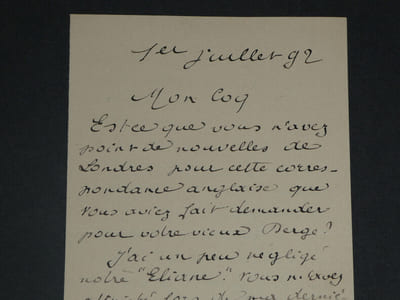 1er juillet 92
Mon Coq
Est ce que vous n'avez
point de nouvelles de
Londres pour cette corres-
pondance anglaise que
vous aviez fait demander
pour votre vieux Serge?
J'ai un peu négligé
notre "Eliane" vous m'avez
lors de ma